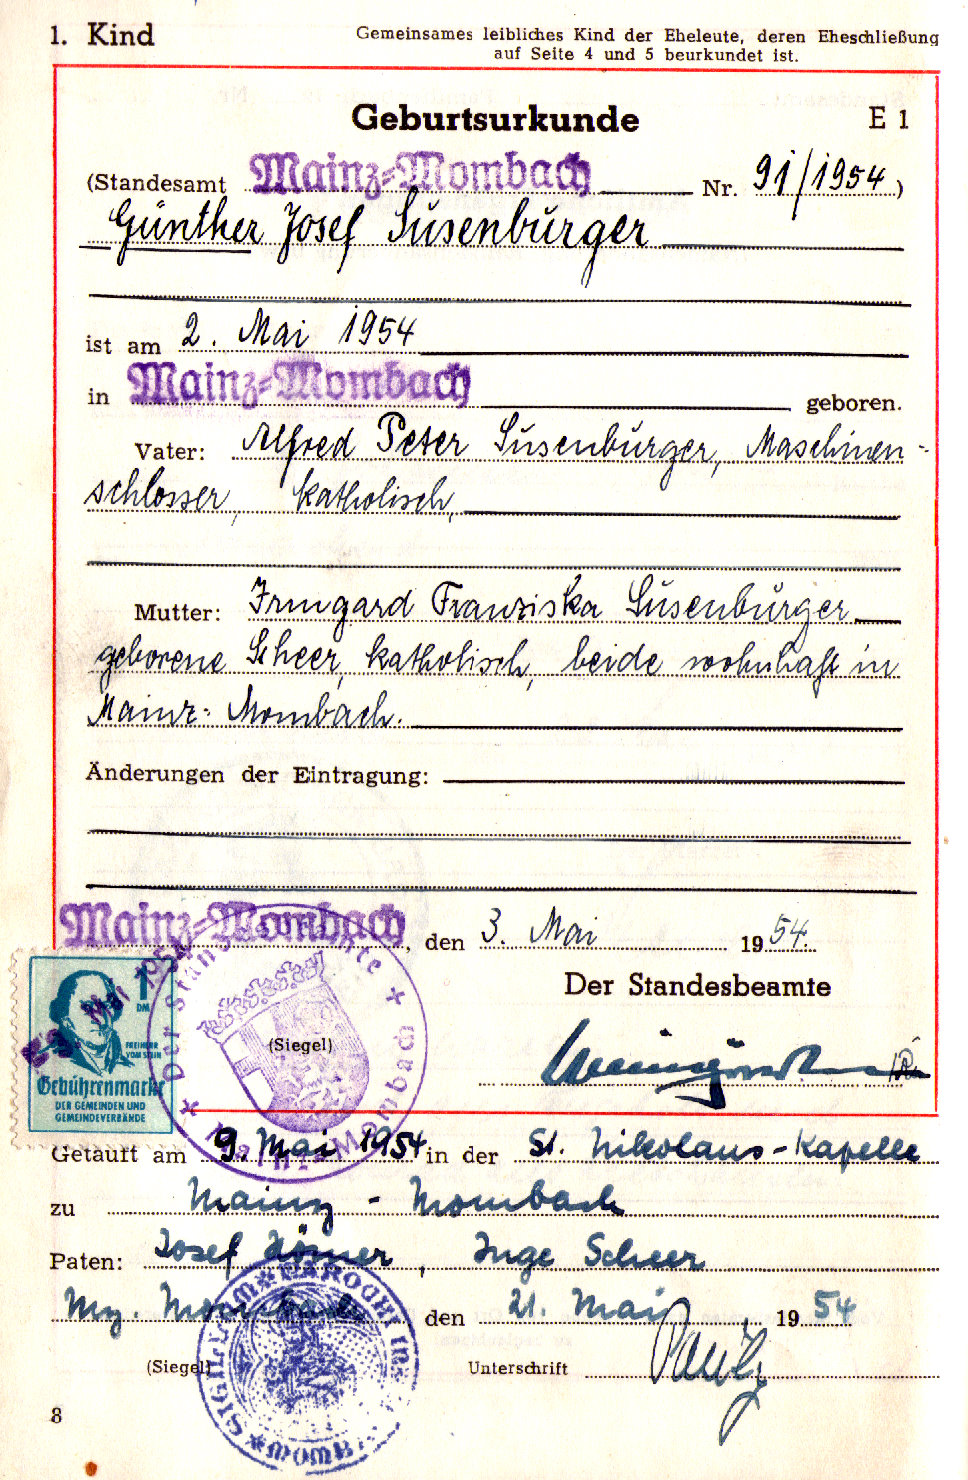 1. Kind
Gemeinsames leibliches Kind der Eheleute, deren Eheschließung
auf Seite 4 und 5 beurkundet ist.
Geburtsurkunde
E 1
(Standesamt Mainz-Mombach Nr. 91/1954)
Günther Josef Susenburger
ist am 2. Mai 1954
in Mainz-Mombach geboren.
Vater: Alfred Peter Susenburger, Maschinen-
schlosser, katholisch,
Mutter: Irmgard Franziska Susenburger
geborene Scheer, katholisch, beide wohnhaft in
Mainz-Mombach.
Änderungen der Eintragung:
Mainz-Mombach, den 3. Mai 1954.
Der Standesbeamte
(Siegel)
Der Standesbeamte
Mainz-Mombach
3. Mai 1954
1 DM
FREIHERR
VOM STEIN
Gebührenmarke
DER GEMEINDEN UND
GEMEINDEVERBÄNDE
Getauft am 9. Mai 1954 in der St. Nikolaus-Kapelle
zu Mainz-Mombach
Paten: Josef Römer, Inge Scheer
Mz. Mombach den 21. Mai 1954
(Siegel)
Unterschrift
8